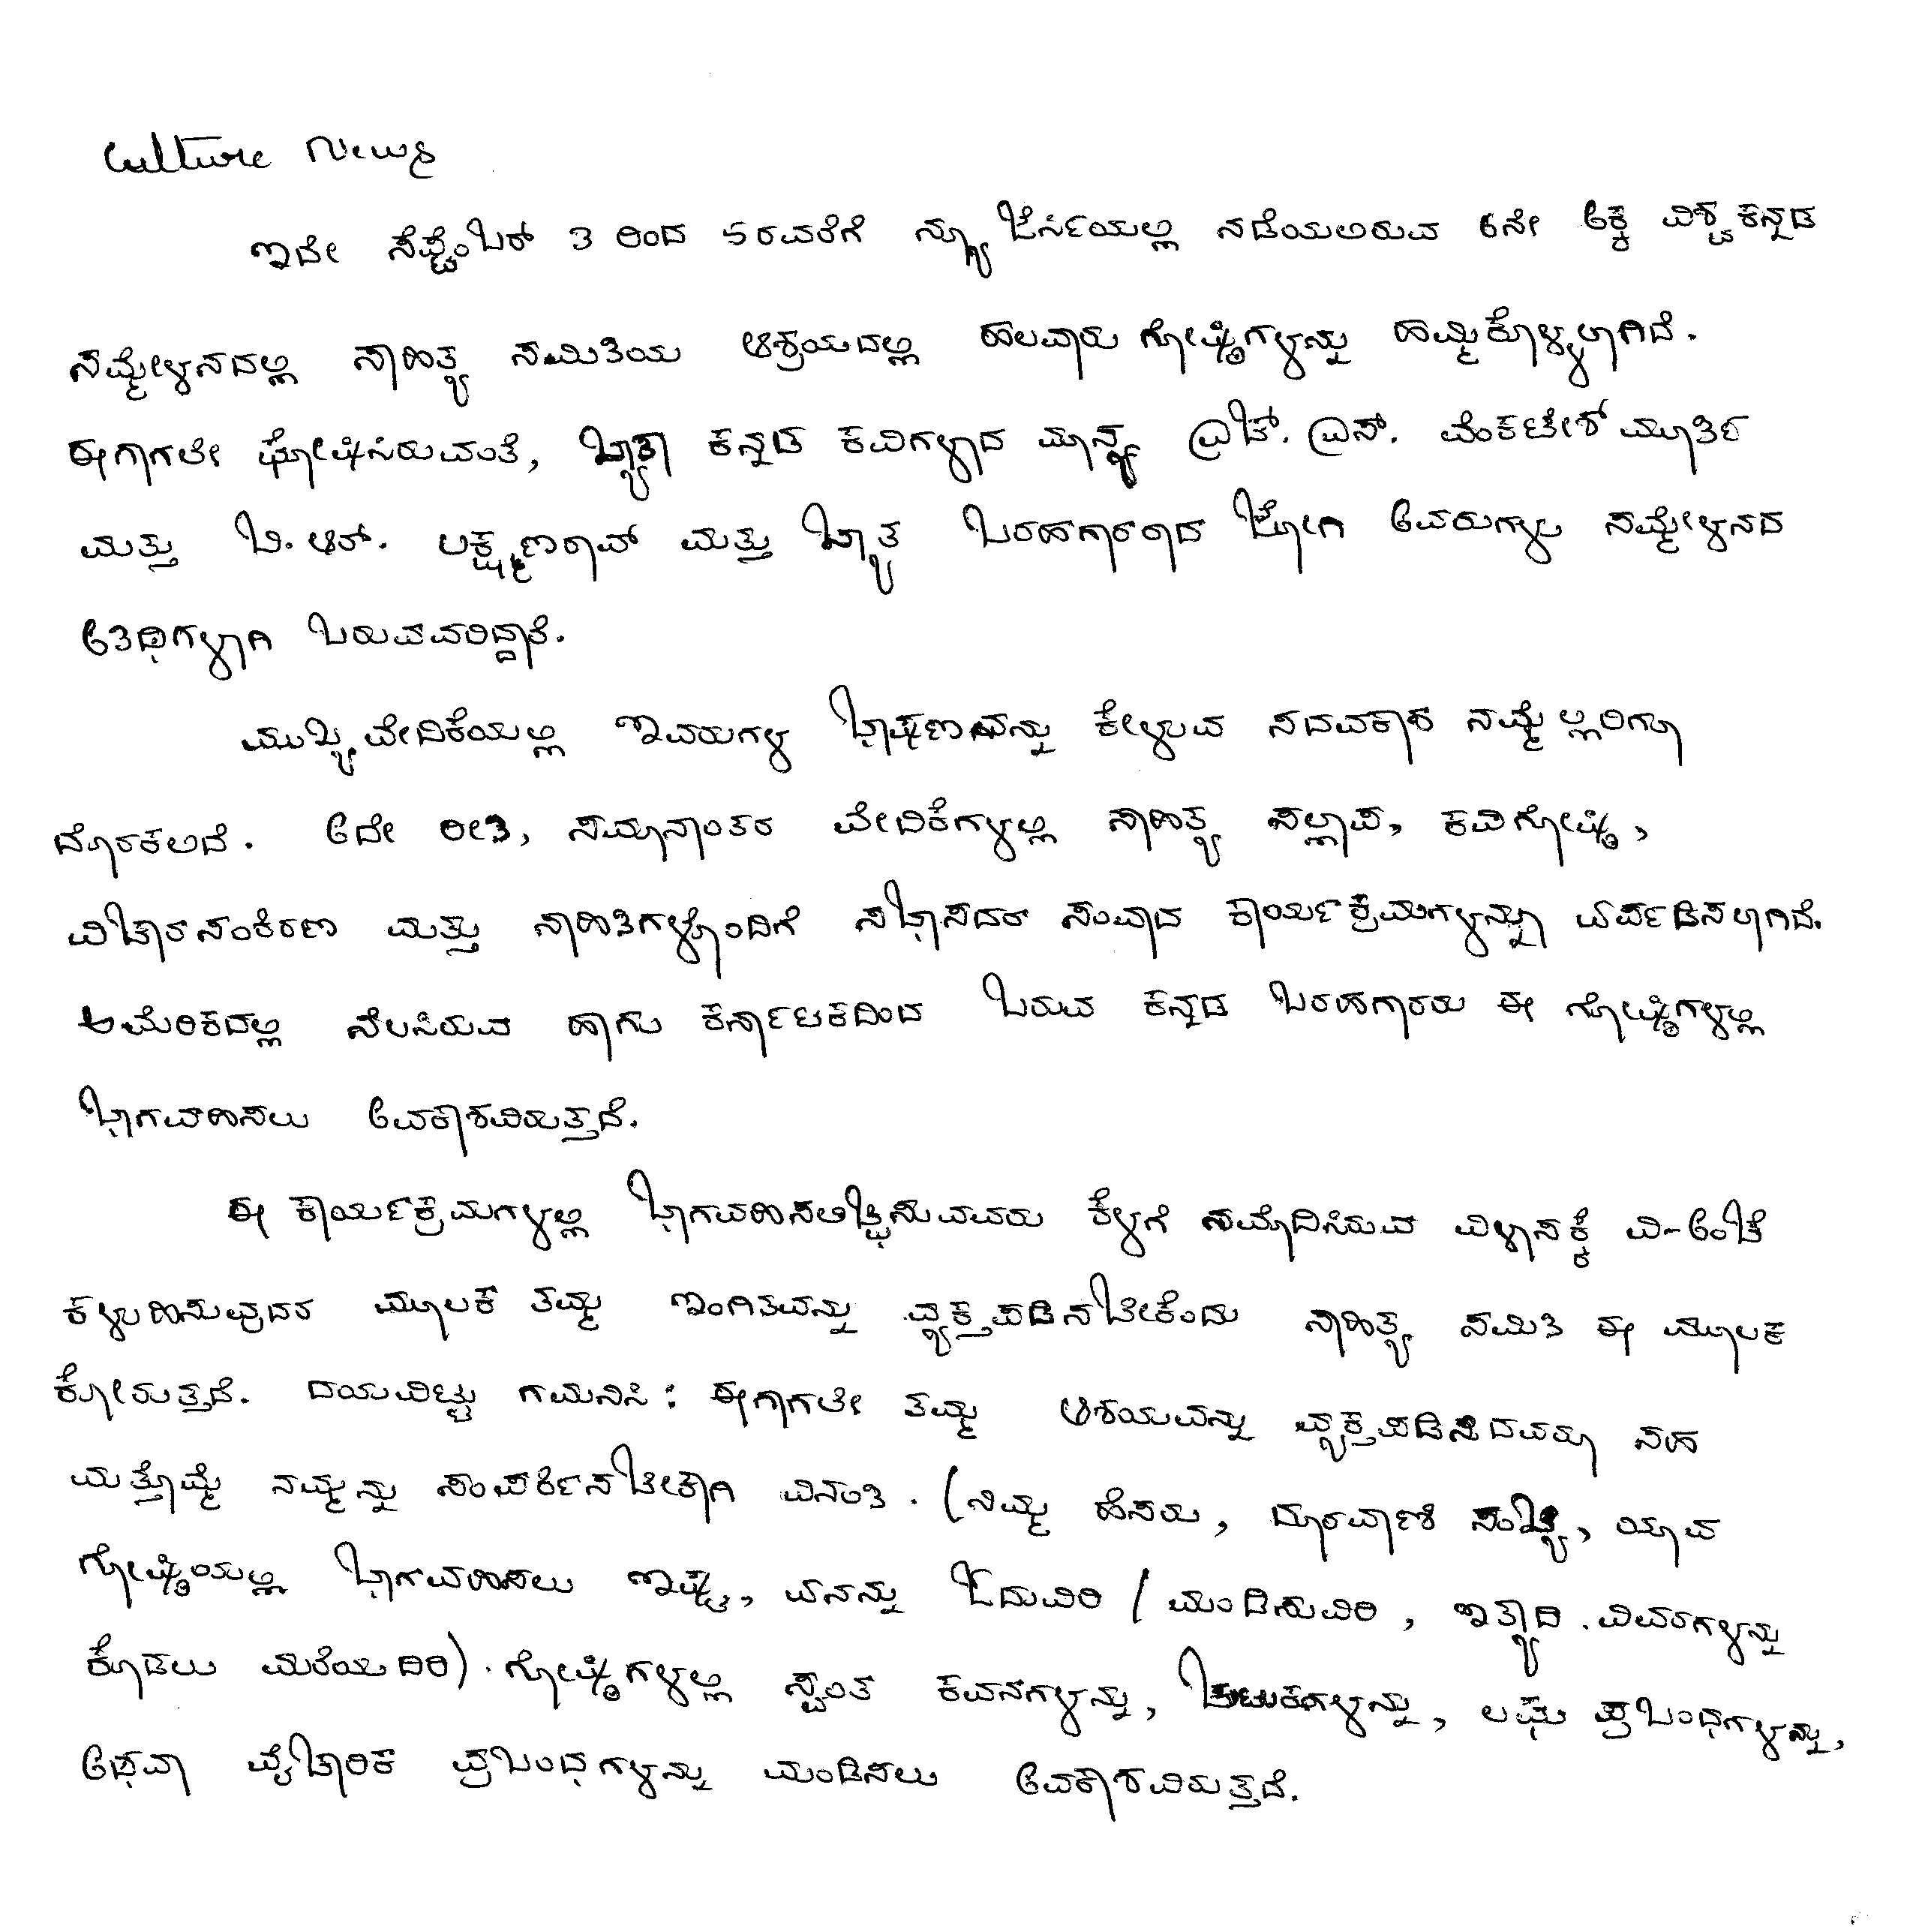 Culture News
ಇದೇ ಸೆಪ್ಟೆಂಬರ್ 3 ರಿಂದ 5ರವರೆಗೆ ನ್ಯೂ ಜೆರ್ಸಿಯಲ್ಲಿ ನಡೆಯಲಿರುವ 6ನೇ ಅಕ್ಕ ವಿಶ್ವಕನ್ನಡ
ಸಮ್ಮೇಳನದಲ್ಲಿ ಸಾಹಿತ್ಯ ಸಮಿತಿಯ ಆಶ್ರಯದಲ್ಲಿ ಹಲವಾರು ಗೋಷ್ಠಿಗಳನ್ನು ಹಮ್ಮಿಕೊಳ್ಳಲಾಗಿದೆ.
ಈಗಾಗಲೇ ಘೋಷಿಸಿರುವಂತೆ, ಖ್ಯಾತ ಕನ್ನಡ ಕವಿಗಳಾದ ಮಾನ್ಯ ಎಚ್. ಎಸ್. ವೆಂಕಟೇಶ್ ಮೂರ್ತಿ
ಮತ್ತು ಬಿ. ಆರ್. ಲಕ್ಷ್ಮಣರಾವ್ ಮತ್ತು ಖ್ಯಾತ ಬರಹಗಾರರಾದ ಜೋಗಿ ಅವರುಗಳು ಸಮ್ಮೇಳನದ
ಅತಿಥಿಗಳಾಗಿ ಬರುವವರಿದ್ದಾರೆ.
ಮುಖ್ಯವೇದಿಕೆಯಲ್ಲಿ ಇವರುಗಳ ಭಾಷಣವನ್ನು ಕೇಳುವ ಸದವಕಾಶ ನಮ್ಮೆಲ್ಲರಿಗೂ
ದೊರಕಲಿದೆ. ಅದೇ ರೀತಿ, ಸಮಾನಾಂತರ ವೇದಿಕೆಗಳಲ್ಲಿ ಸಾಹಿತ್ಯ ಸಲ್ಲಾಪ, ಕವಿಗೋಷ್ಠಿ,
ವಿಚಾರಸಂಕಿರಣ ಮತ್ತು ಸಾಹಿತಿಗಳೊಂದಿಗೆ ಸಭಾಸದರ ಸಂವಾದ ಕಾರ್ಯಕ್ರಮಗಳನ್ನೂ ಏರ್ಪಡಿಸಲಾಗಿದೆ.
ಅಮೆರಿಕದಲ್ಲಿ ನೆಲಸಿರುವ ಹಾಗು ಕರ್ನಾಟಕದಿಂದ ಬರುವ ಕನ್ನಡ ಬರಹಗಾರರು ಈ ಗೋಷ್ಠಿಗಳಲ್ಲಿ
ಭಾಗವಹಿಸಲು ಅವಕಾಶವಿರುತ್ತದೆ.
ಈ ಕಾರ್ಯಕ್ರಮಗಳಲ್ಲಿ ಭಾಗವಹಿಸಲಿಚ್ಛಿಸುವವರು ಕೆಳಗೆ ನಮೂದಿಸಿರುವ ವಿಳಾಸಕ್ಕೆ ವಿ-ಅಂಚೆ
ಕಳುಹಿಸುವುದರ ಮೂಲಕ ತಮ್ಮ ಇಂಗಿತವನ್ನು ವ್ಯಕ್ತಪಡಿಸಬೇಕೆಂದು ಸಾಹಿತ್ಯ ಸಮಿತಿ ಈ ಮೂಲಕ
ಕೋರುತ್ತದೆ. ದಯವಿಟ್ಟು ಗಮನಿಸಿ: ಈಗಾಗಲೇ ತಮ್ಮ ಆಶಯವನ್ನು ವ್ಯಕ್ತಪಡಿಸಿದವರೂ ಸಹ
ಮತ್ತೊಮ್ಮೆ ನಮ್ಮನ್ನು ಸಂಪರ್ಕಿಸಬೇಕಾಗಿ ವಿನಂತಿ. (ನಿಮ್ಮ ಹೆಸರು, ದೂರವಾಣಿ ಸಂಖ್ಯೆ, ಯಾವ
ಗೋಷ್ಠಿಯಲ್ಲಿ ಭಾಗವಹಿಸಲು ಇಷ್ಟ, ಏನನ್ನು ಓದುವಿರಿ / ಮಂಡಿಸುವಿರಿ, ಇತ್ಯಾದಿ. ವಿವರಗಳನ್ನು
ಕೊಡಲು ಮರೆಯದಿರಿ). ಗೋಷ್ಠಿಗಳಲ್ಲಿ ಸ್ವಂತ ಕವನಗಳನ್ನು, ಚುಟುಕಗಳನ್ನು, ಲಘು ಪ್ರಬಂಧಗಳನ್ನು,
ಅಥವಾ ವೈಚಾರಿಕ ಪ್ರಬಂಧಗಳನ್ನು ಮಂಡಿಸಲು ಅವಕಾಶವಿರುತ್ತದೆ.